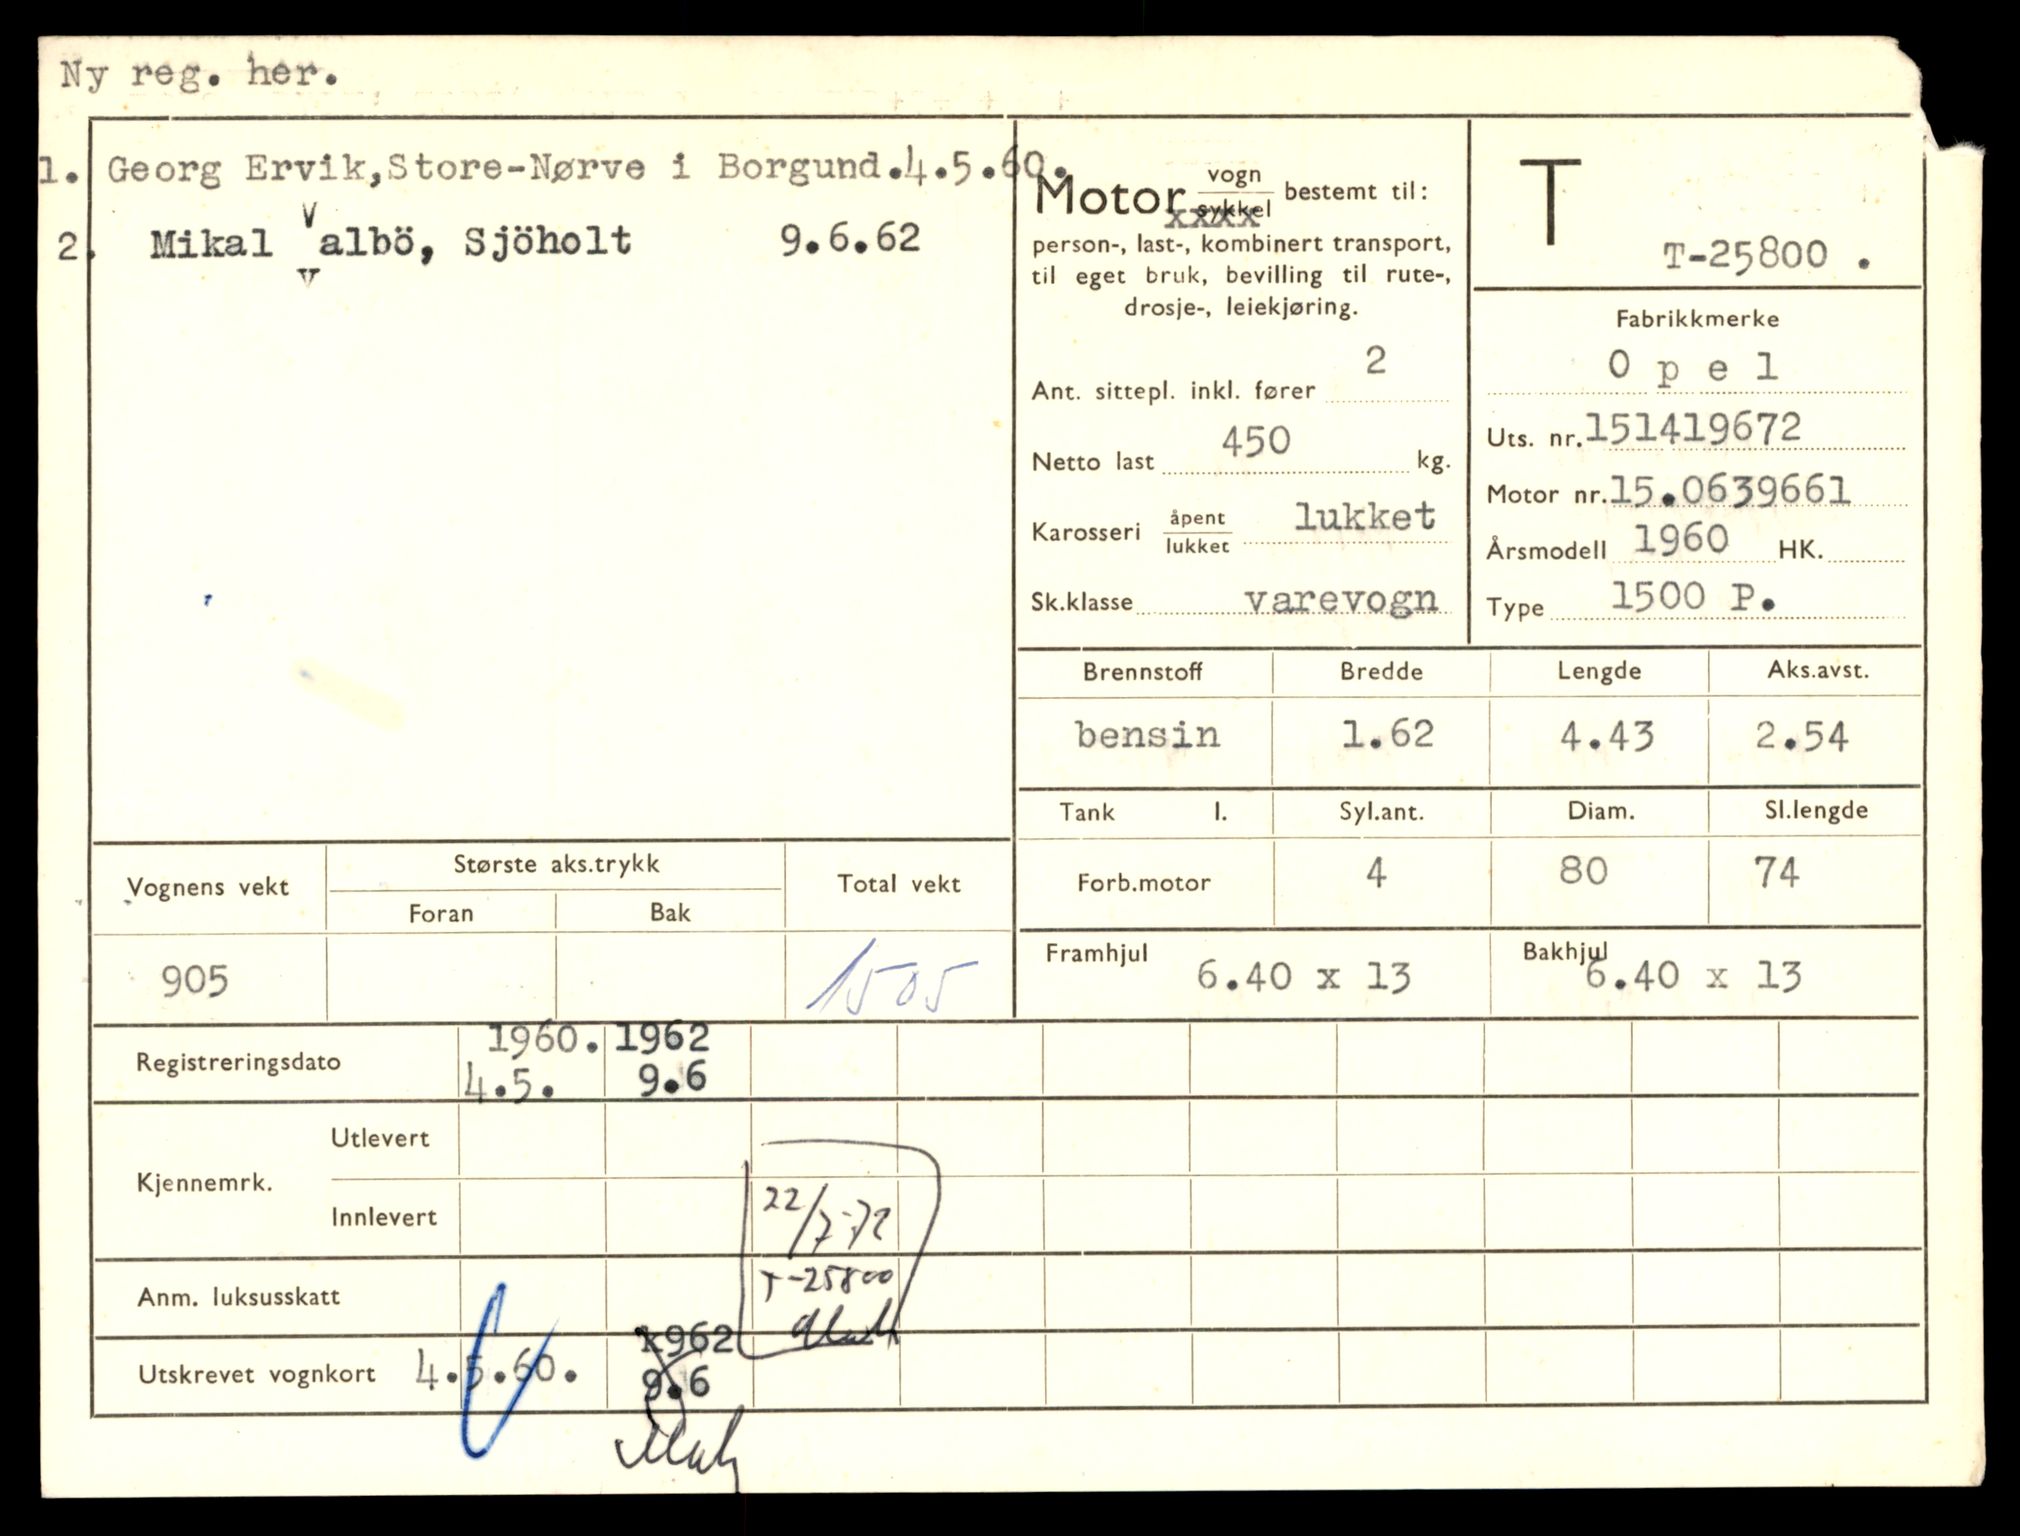 Ny reg. her.
1. Georg Ervik,Store-Nørve i Borgund.4.5.60.
2. Mikal Valbö, Sjöholt 9.6.62
Motor vogn
sykkel bestemt til:
xxxx
person-, last-, kombinert transport,
til eget bruk, bevilling til rute-,
drosje-, leiekjøring.
Ant. sittepl. inkl. fører 2
Netto last 450 kg.
Karosseri åpent
lukket lukket
Sk.klasse varevogn
T
T-25800 .
Fabrikkmerke
Opel
Uts. nr. 151419672
Motor nr. 15.0639661
Årsmodell 1960 HK.
Type 1500 P.
Brennstoff Bredde Lengde Aks.avst.
bensin 1.62 4.43 2.54
Tank l. Syl.ant. Diam. Sl.lengde
Forb.motor 4 80 74
Framhjul 6.40 x 13 Bakhjul 6.40 x 13
Vognens vekt Største aks.trykk Total vekt
Foran Bak
905 1505
Registreringsdato 1960. 1962
4.5. 9.6
Kjennemrk. Utlevert
Innlevert 22/7-72
Anm. luksusskatt T-25800
Utskrevet vognkort 4.5.60. 1962
9.6